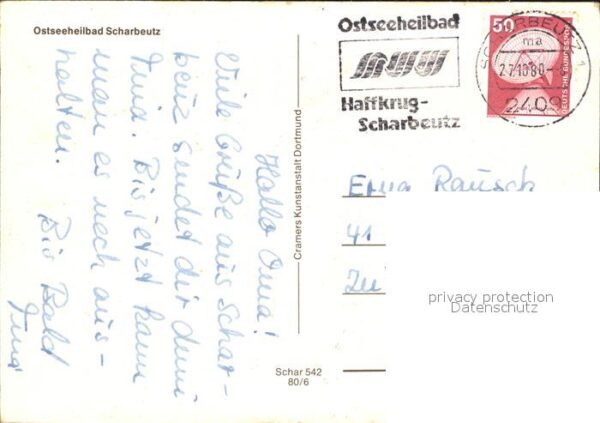 Ostseeheilbad Scharbeutz
Hallo Oma!
Viele Grüße aus Schar-
beuz sendet dir deine
Tina. Bis jetzt kann
man es noch aus-
halten. Bis Bald
Tina
Cramers Kunstanstalt Dortmund
Schar 542
80/6
Ostseeheilbad
Haffkrug-
Scharbeutz
SCHARBEUTZ 1
ma
2409
50
DEUTSCHE BUNDESPOST
Erna Rausch
41
privacy protection
Datenschutz